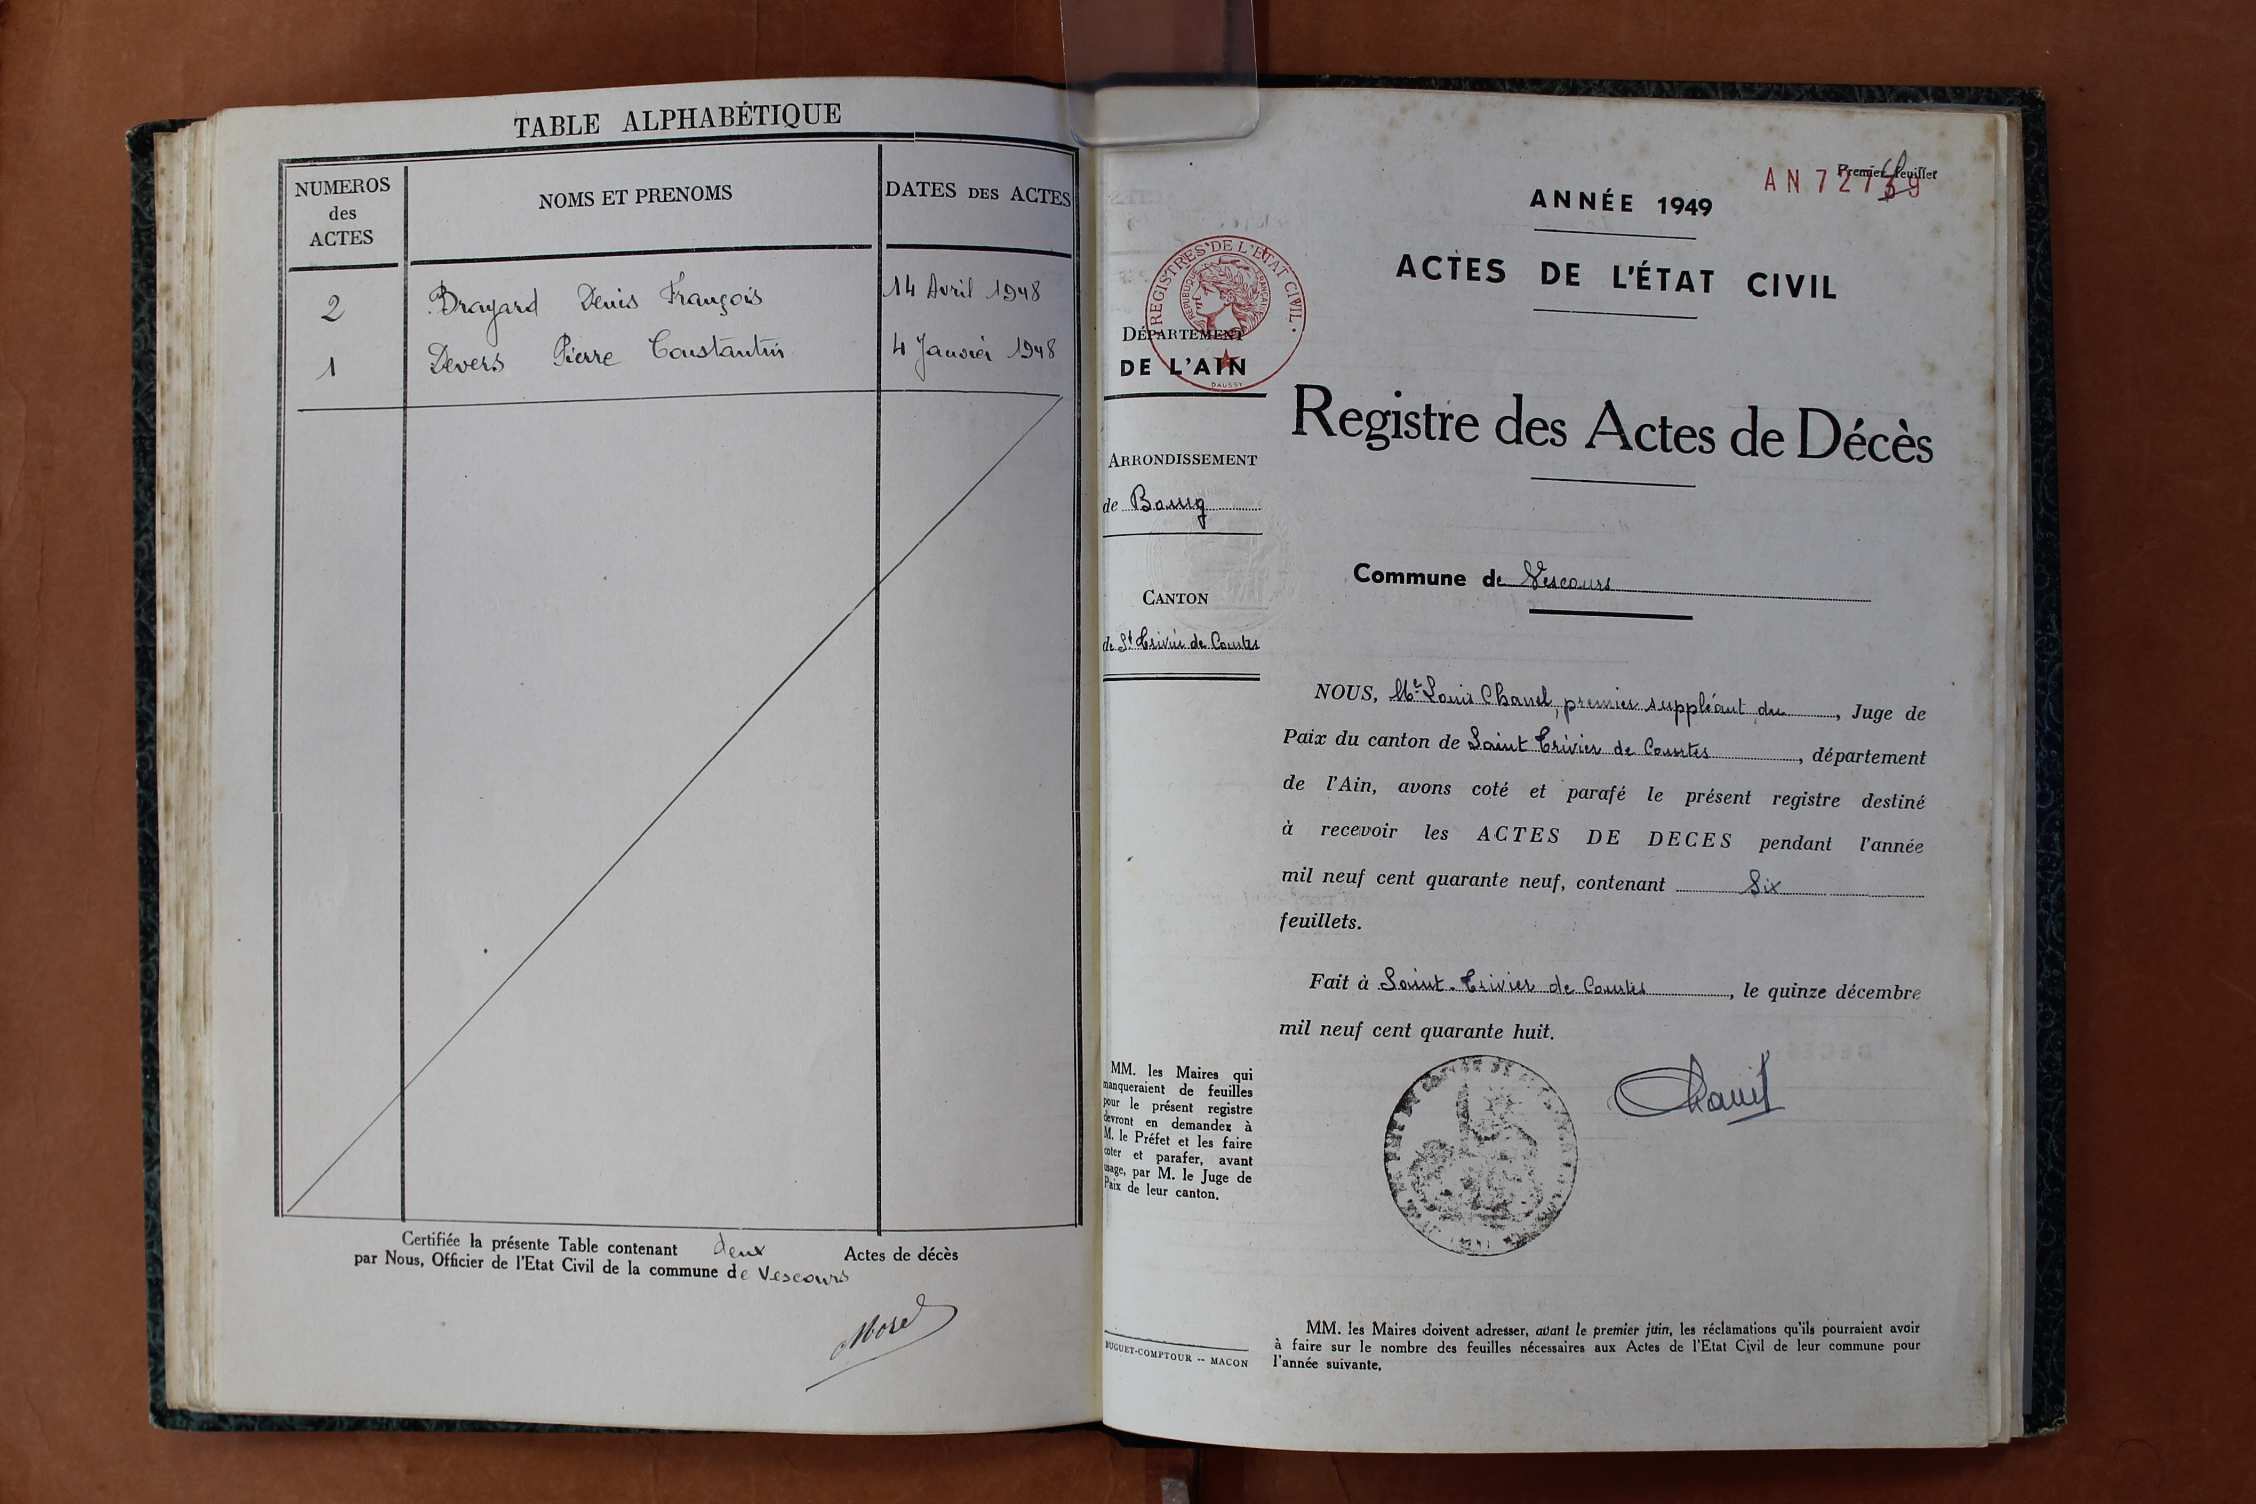 TABLE ALPHABÉTIQUE
NUMEROS
des
ACTES
NOMS ET PRENOMS
DATES DES ACTES
2 Brayard Denis François 14 Avril 1948
1 Devers Pierre Constantin 4 Janvier 1948
Certifiée la présente Table contenant deux Actes de décès
par Nous, Officier de l'Etat Civil de la commune de Vescours
Morel
Premier feuillet
AN 727
ANNÉE 1949
ACTES DE L'ÉTAT CIVIL
REGISTRES DE L'ÉTAT CIVIL
RÉPUBLIQUE FRANÇAISE
DAUSSY
DÉPARTEMENT
DE L'AIN
ARRONDISSEMENT
de Bourg
CANTON
de St Trivier de Courtes
MM. les Maires qui
manqueraient de feuilles
pour le présent registre
devront en demander à
M. le Préfet et les faire
coter et parafer, avant
usage, par M. le Juge de
Paix de leur canton.
BUGUET-COMPTOUR -- MACON
Registre des Actes de Décès
Commune de Vescours
NOUS, Mr Louis Chanel, premier suppléant du, Juge de
Paix du canton de Saint Trivier de Courtes, département
de l'Ain, avons coté et parafé le présent registre destiné
à recevoir les ACTES DE DECES pendant l'année
mil neuf cent quarante neuf, contenant Six
feuillets.
Fait à Saint-Trivier de Courtes, le quinze décembre
mil neuf cent quarante huit.
MM. les Maires doivent adresser, avant le premier juin, les réclamations qu'ils pourraient avoir
à faire sur le nombre des feuilles nécessaires aux Actes de l'Etat Civil de leur commune pour
l'année suivante.